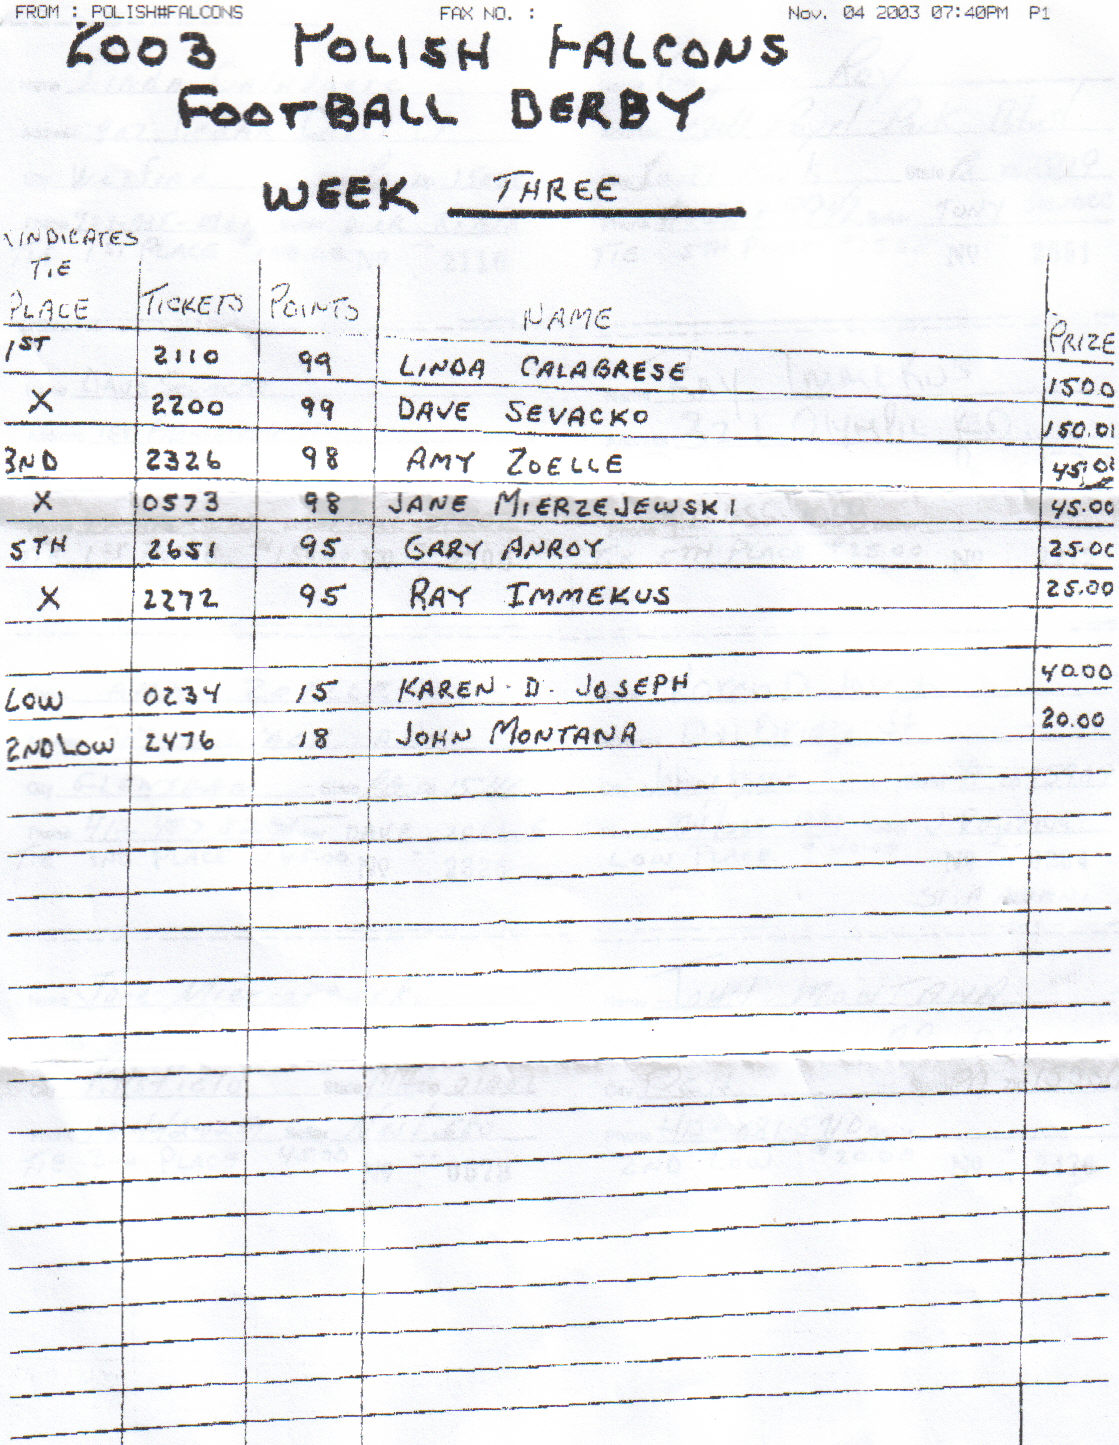 FROM : POLISH#FALCONS FAX NO. : Nov. 04 2003 07:40PM P1
2003 POLISH FALCONS
FOOTBALL DERBY
WEEK THREE
X INDICATES
TIE
PLACE TICKETS POINTS NAME PRIZE
1ST 2110 99 LINDA CALABRESE 150.0
X 2200 99 DAVE SEVACKO 150.00
3ND 2326 98 AMY ZOELLE 45.00
X 0573 98 JANE MIERZEJEWSKI 45.00
5TH 2651 95 GARY ANROY 25.00
X 2272 95 RAY IMMEKUS 25.00
LOW 0234 15 KAREN D. JOSEPH 40.00
2ND LOW 2476 18 JOHN MONTANA 20.00